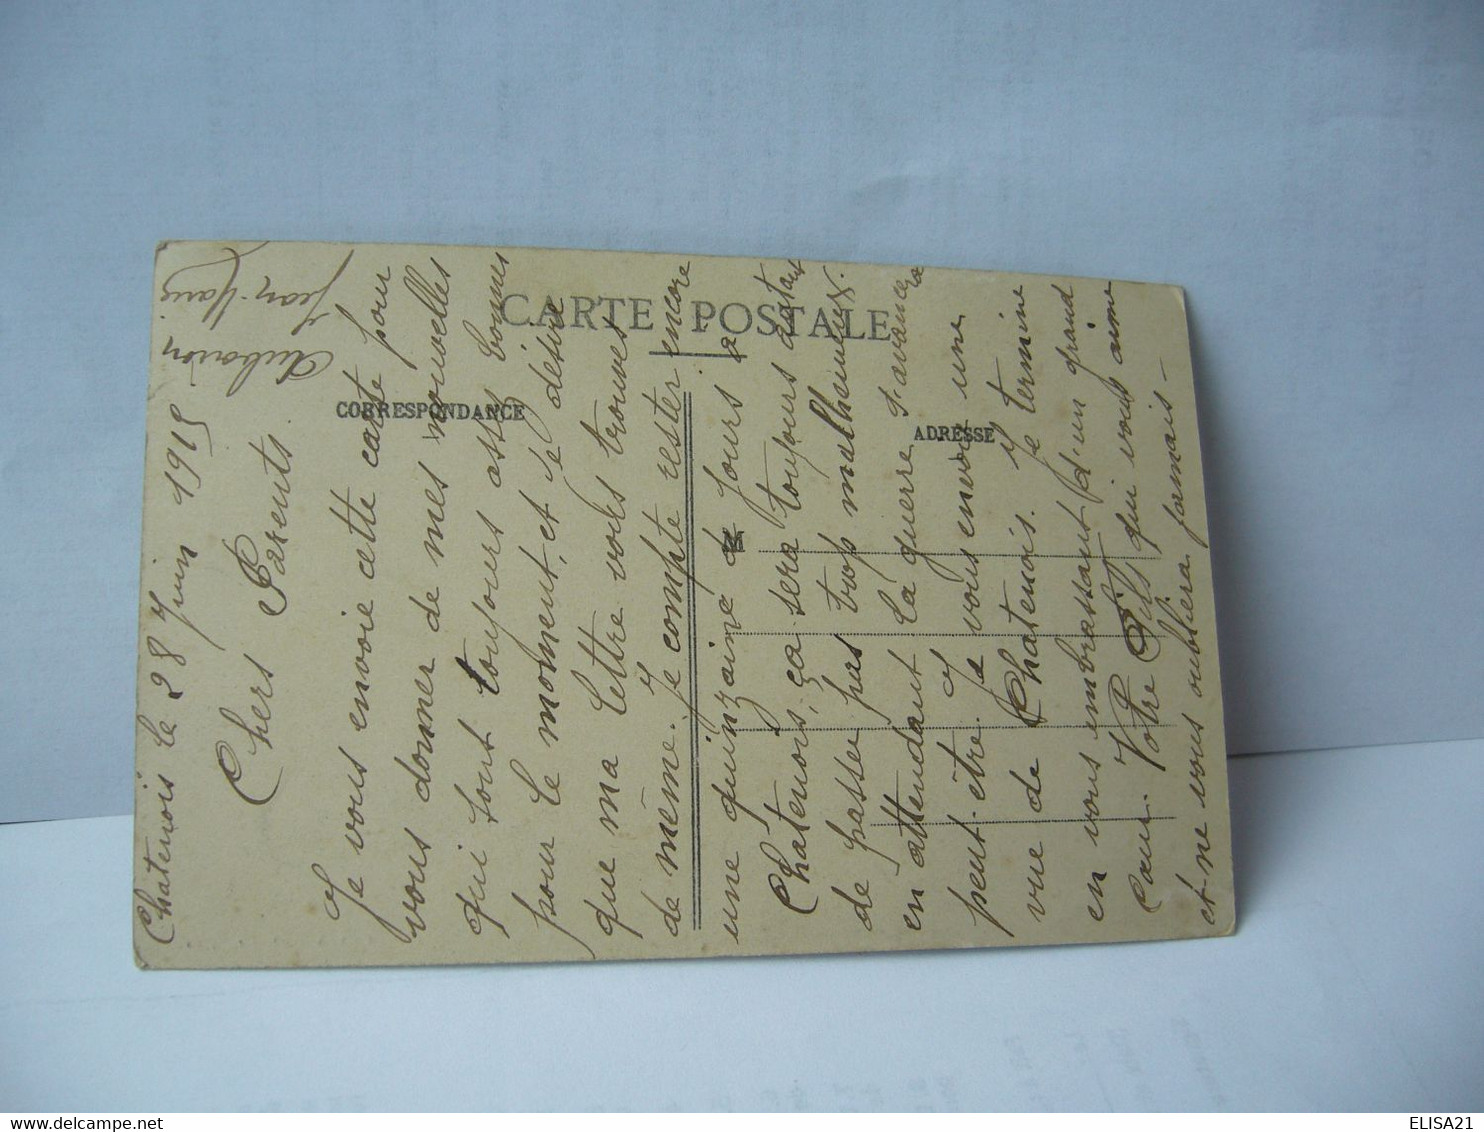 CARTE POSTALE
CORRESPONDANCE
ADRESSE
M
Jean-Marie
Aubouon
Chatenois le 28 Juin 1915
Chers Parents
Je vous envoie cette carte pour
vous donner de mes nouvelles
qui sont toujours assez bonnes
pour le moment, et je désire
que ma lettre vous trouves
de même. Je compte rester encore
une quinzaine de jours a
Chatenois, ça sera toujours autant
de passer pas trop malheureux.
en attendant la guerre s'avancera
peut-être. Je vous envoie une
vue de Chatenois. Je termine
en vous embrassant d'un grand
Cœur. Votre Fils qui vous aime
et ne vous oubliera jamais -
ELISA21